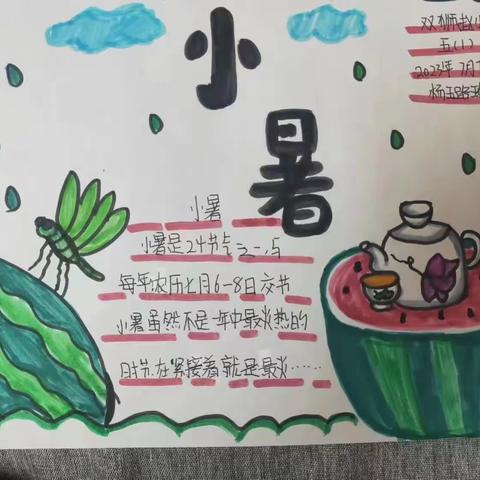 小暑
双狮赵
五(1)
2023年7月
杨玉
小暑
小暑是24节气之一,与
每年农历七月6-8日交节
小暑虽然不是一年中最炎热的
时节,在紧接着就是最炎……